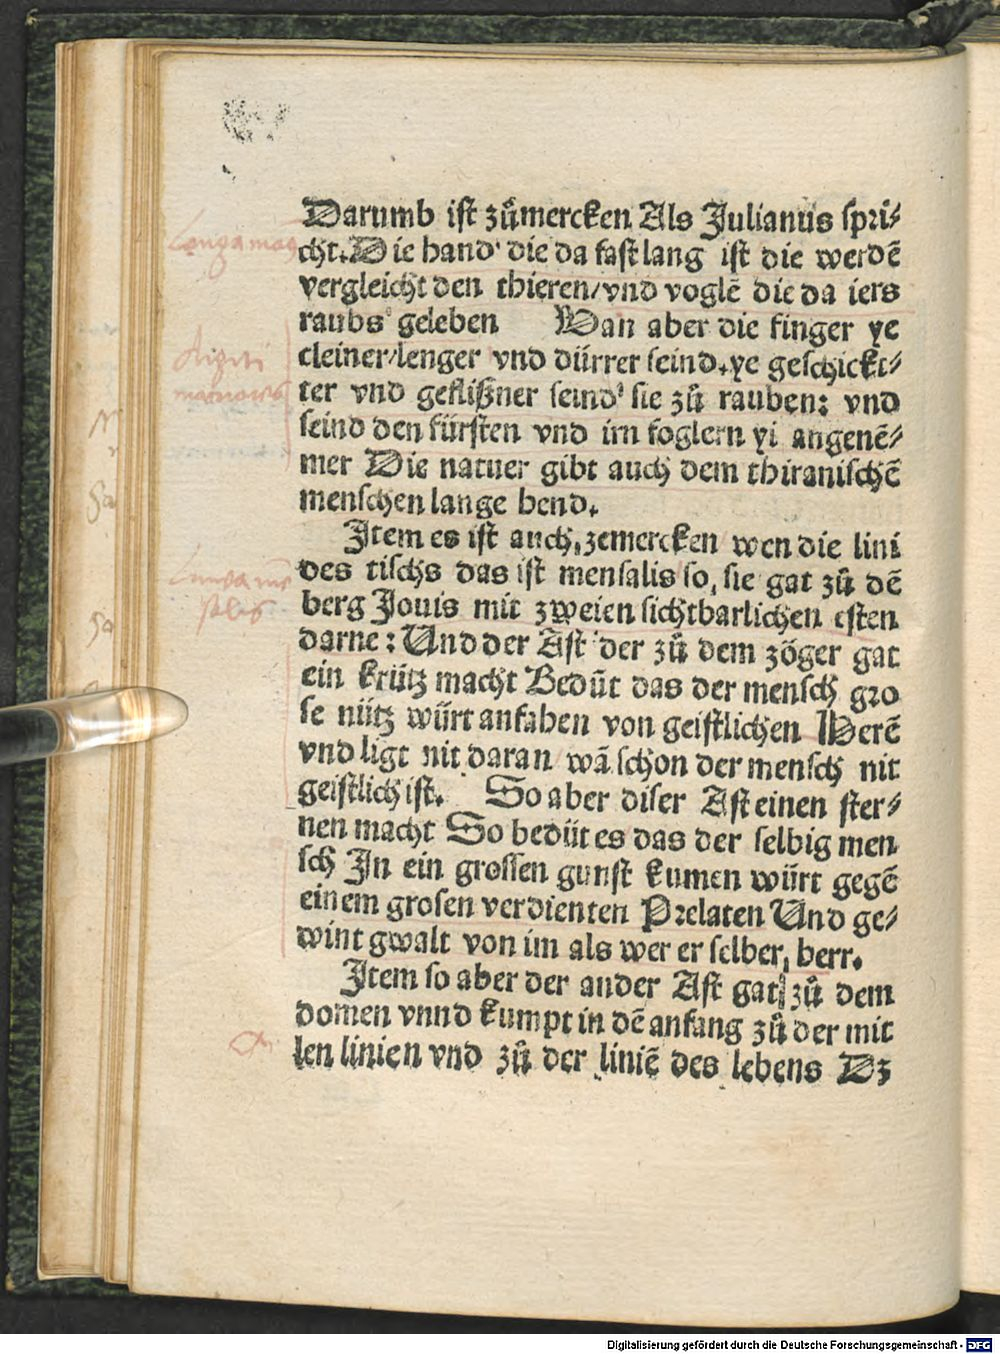 Darumb ist zůmercken Als Julianus spri⸗
cht. Die hand die da fast lang ist die werdē
vergleicht den thieren/vnd voglē die da iers
raubs geleben Wan aber die finger ye
cleiner/lenger vnd dürrer seind. ye geschickt⸗
ter vnd geflißner seind sie zů rauben: vnd
seind den fürsten vnd irn foglern yi angenē⸗
mer Die natuer gibt auch dem thiranischē
menschen lange hend.
Item es ist auch, zemercken wen die lini
des tischs das ist mensalis so, sie gat zů dē
berg Jouis mit zweien sichtbarlichen esten
darne: Und der Ast der zů dem zöger gat
ein krütz macht Bedüt das der mensch gro
se nütz würt anfahen von geistlichen Herē
vnd ligt nit daran wā schon der mensch nit
geistlich ist. So aber diser Ast einen ster⸗
nen macht So bedüt es das der selbig men
sch In ein grossen gunst kumen würt gegē
einem grosen verdienten Prelaten Und ge⸗
wint gwalt von im als wer er selber, herr.
Item so aber der ander Ast gat zů dem
domen vnnd kumpt in dē anfang zů der mit
len linien vnd zů der liniē des lebens Dz
Longa man
digiti
Digitalisierung gefördert durch die Deutsche Forschungsgemeinschaft - DFG